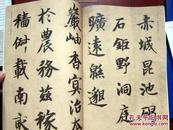 赤城昆池碣
石鉅野洞庭
曠遠緜邈
巖岫杳冥治本
於農務茲稼
穡俶載南畝